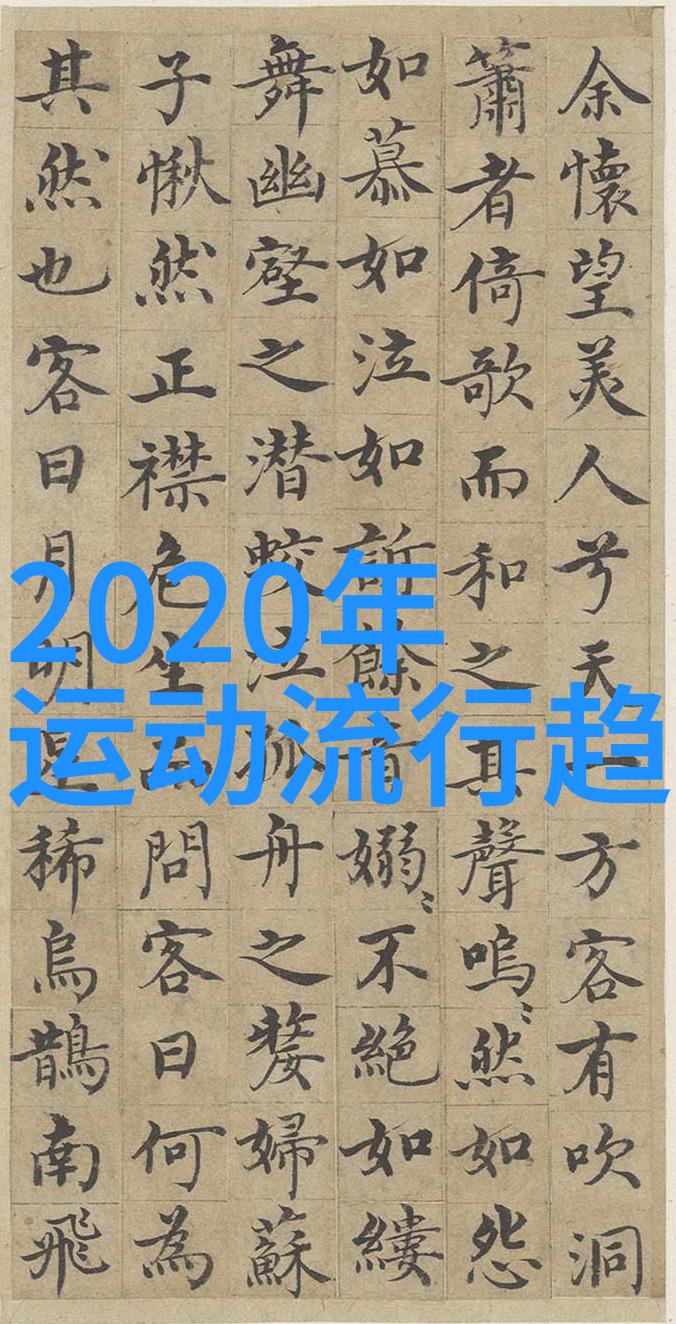 余懷望美人兮天一方客有吹洞
簫者倚歌而和之其聲嗚〻然如怨
如慕如泣如訴餘音嫋〻不絕如縷
舞幽壑之潛蛟泣孤舟之嫠婦蘇
子愀然正襟危坐而問客曰何為
其然也客曰月明星稀烏鵲南飛
2020年
运动流行趋